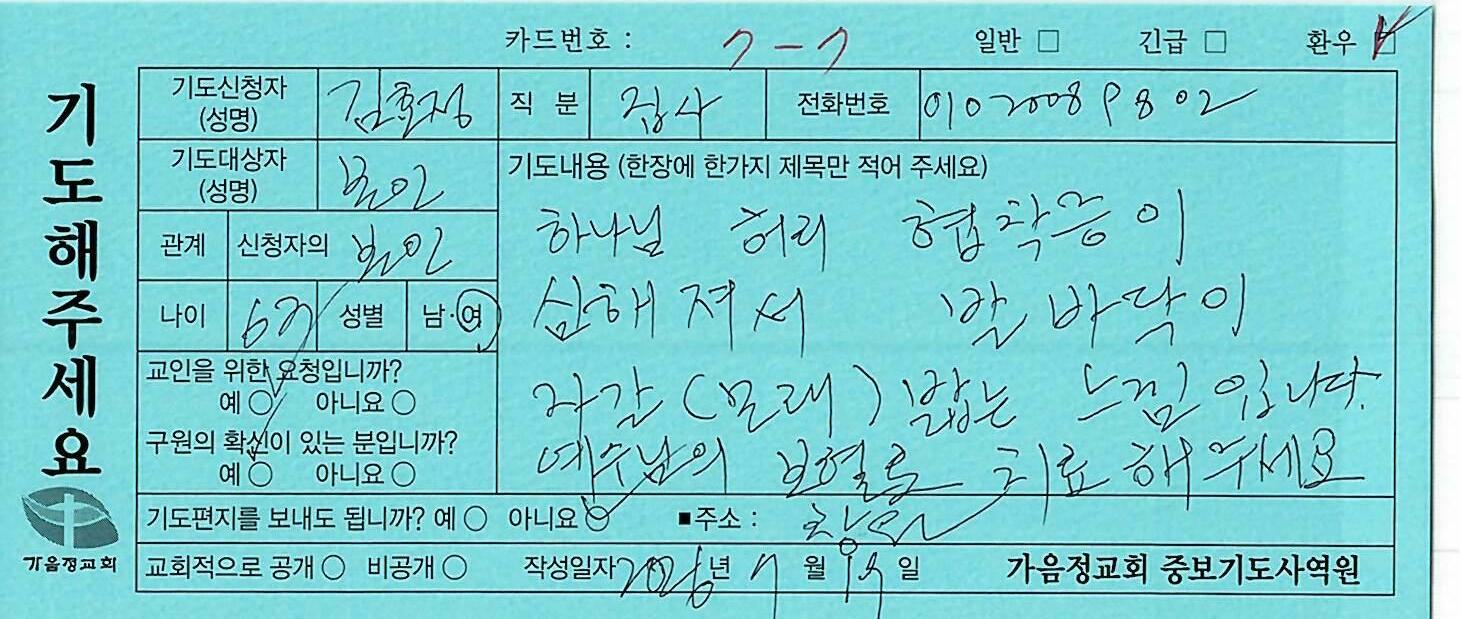 카드번호 : 7-7 일반 □ 긴급 □ 환우 □
기도해주세요
기도신청자 (성명) 김효정 직 분 집사 전화번호 01020089802
기도대상자 (성명) 본인
관계 신청자의 본인
나이 67 성별 남·여
교인을 위한 요청입니까?
예 ○ 아니요 ○
구원의 확신이 있는 분입니까?
예 ○ 아니요 ○
기도내용 (한장에 한가지 제목만 적어 주세요)
하나님 허리 협착증이
심해져서 발바닥이
자갈 (모래) 밟는 느낌입니다.
예수님의 보혈로 치료해주세요
기도편지를 보내도 됩니까? 예 ○ 아니요 ○ ■주소 : 창원
교회적으로 공개 ○ 비공개 ○ 작성일자 2026년 7월 일
가음정교회 중보기도사역원
가음정교회